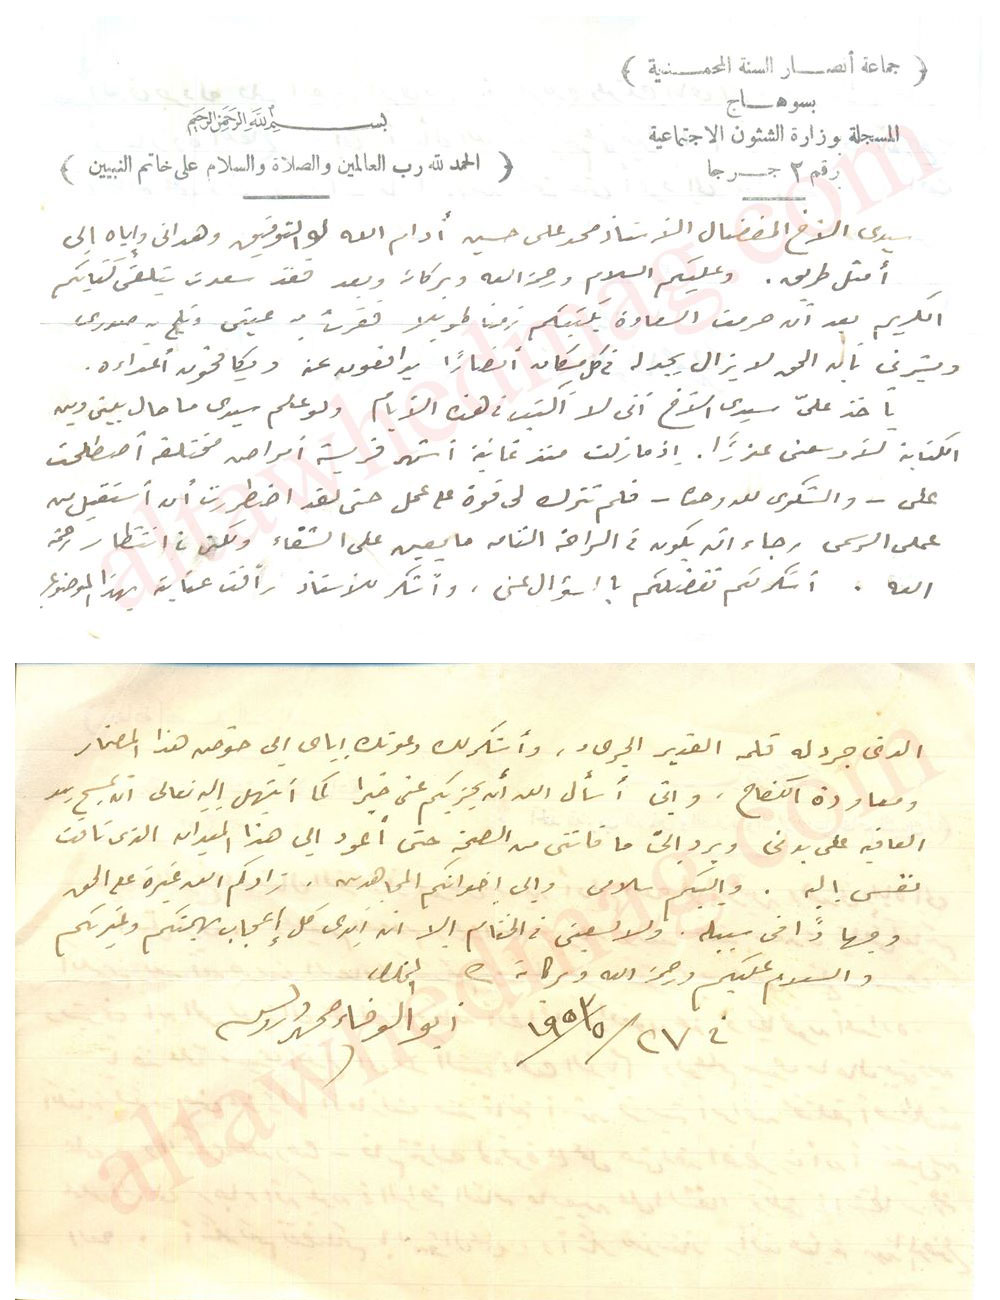 ﴿ جماعة أنصار السنة المحمدية ﴾
بسوهاج
المسجلة بوزارة الشئون الاجتماعية
رقم ٢ جرجا
بسم الله الرحمن الرحيم
﴿ الحمد لله رب العالمين والصلاة والسلام على خاتم النبيين ﴾
سيدى الأخ المفضال الأستاذ محمد على حسين أدام الله له التوفيق وهدانى وإياه إلى
أمثل طريق . وعليكم السلام ورحمة الله وبركاته وبعد فقد سعدت بتلقى كتابكم
الكريم بعد أن حرمت السعادة بكتبكم زمنا طويلا فقرت به عينى وثلج به صدرى
وبشرنى بأن الحق لا يزال يجد له فى كل مكان أنصارًا يدافعون عنه ويكافحون أعداءه .
يأخذ علىّ سيدى الأخ أنى لا أكتب فى هذه الأيام ولو علم سيدى ما حال بينى وبين
الكتابة لأوسعنى عذرًا . إذ مازلت منذ ثمانية أشهر فريسة أمراض مختلفة اصطلحت
على - والشكوى لله وحده - فلم تترك لى قوة على عمل حتى لقد اضطررت أن أستقيل من
عملى الرسمى رجاء أن يكون فى الراحة التامة ما يعين على الشفاء ولكن فى انتظار رحمة
الله . أشكر لكم تفضلكم بالسؤال عنى ، وأشكر للأستاذ رأفت عنايته بهذا الموضوع
الذى جرد له قلمه القدير الجرىء ، وأشكر لك دعوتك إياى إلى خوض هذا المضمار
ومعاودة الكفاح ، وإنى أسأل الله أن يجزيكم عنى خيرا كما أبتهل إليه تعالى أن يمسح بيد
العافية على بدنى ويرد إلىّ ما فاتنى من الصحة حتى أعود إلى هذا الميدان الذى تاقت
نفسى إليه . وإليكم سلامى وإلى إخوانكم المجاهدين . زادكم الله غيرة على الحق
وجهادًا فى سبيله . ولا يسعنى فى الختام إلا أن أبدى كل إعجاب بهمتكم وغيرتكم
والسلام عليكم ورحمة الله وبركاته المخلص
فى ٢٧/٥/١٩٥٣ أبو الوفاء محمد درويش
altawhedmag.com
altawhedmag.com